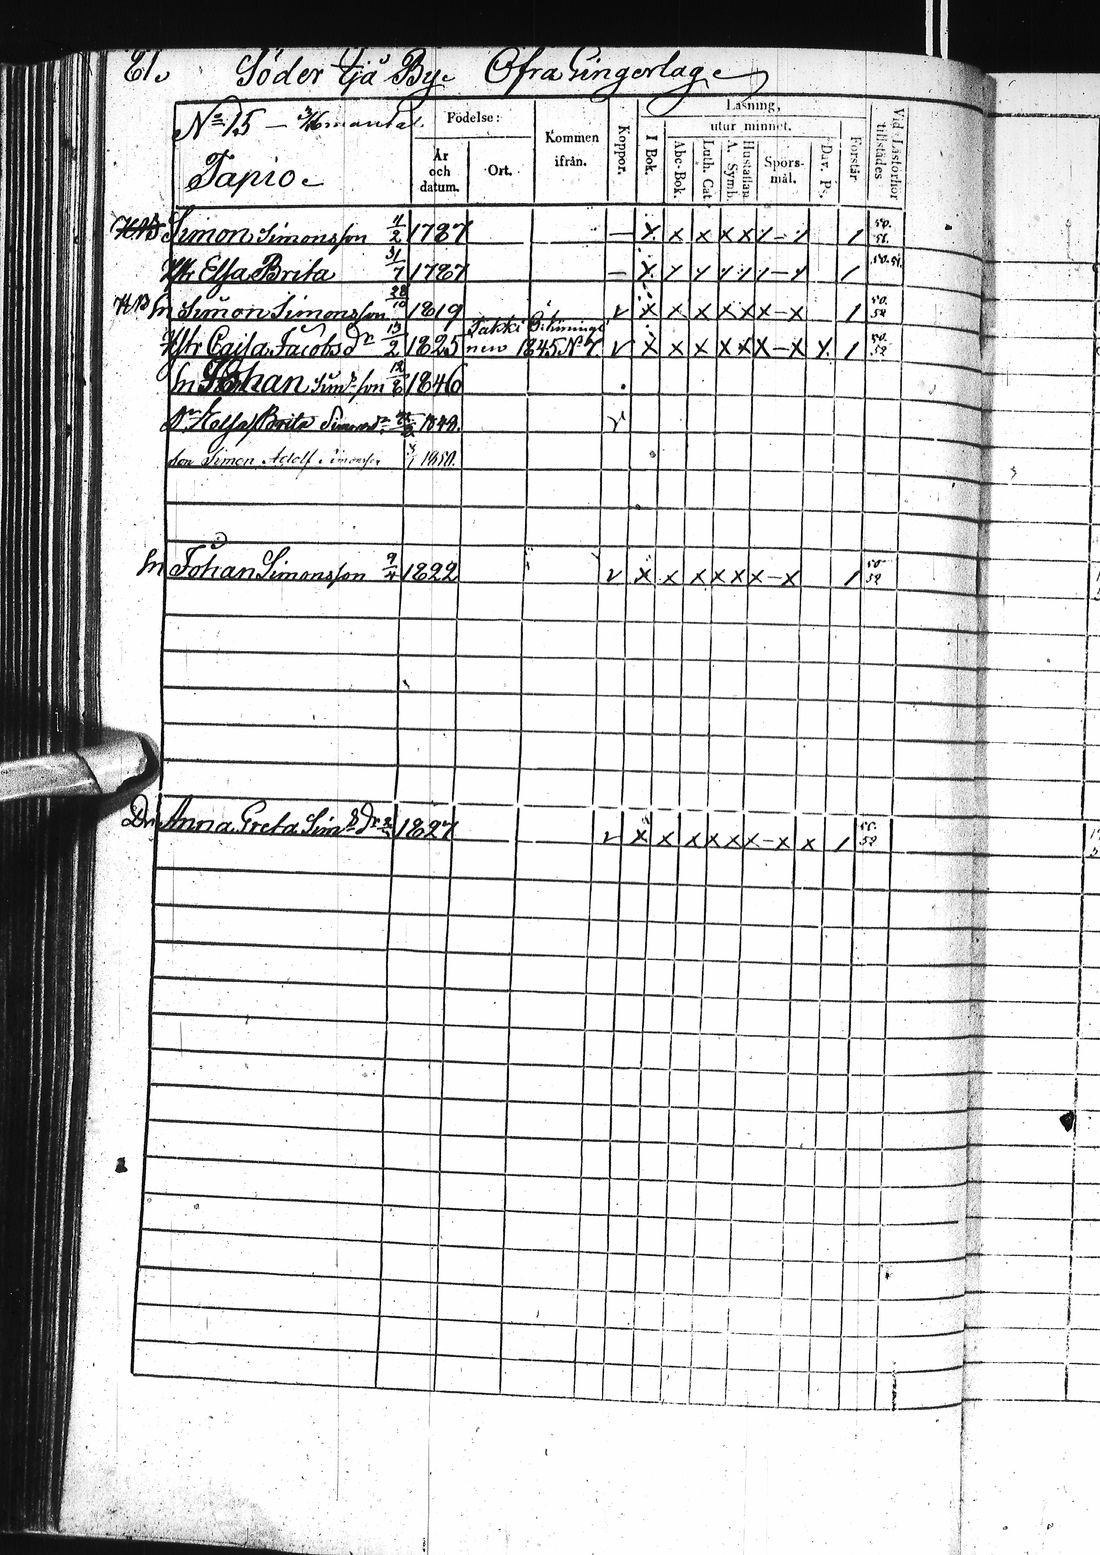 61. Söder tjä By. Öfra Gingerlag
No 15 — 3/16 mantal.
Tapio
Födelse:
År och datum.
Ort.
Kommen ifrån.
Koppor.
Läsning,
I Bok.
utur minnet.
Abc-Bok.
Luth. Cat
A. Symb.
Hustaflan
Spörsmål.
Dav. Ps.
Förstår
Vid Läsförhör tillstädes
HB Simon Simonsson 4/2 1787 — X X X X X / - / / 50. 51.
Hstr Elsa Brita 31/7 1787 — X / / / / / - / / 50. 51.
HB Sn Simon Simonsson 28/10 1819 v X X X X X X - X / 50. 52
Hstr Cajsa Jacobsdr 13/2 1825 1845 No 7. v X X X X X X - X X / 50. 52
Sn Johan Sim:son 12/8 1846
Dr Elsa Brita Simonsdr 1848. v
Son Simon Adolf Simonsson 1850.
Sn Johan Simonsson 9/4 1822 v X X X X X X - X / 50 52
Dr Anna Greta Sim:s dr 1827 v X X X X X X - X X / 52